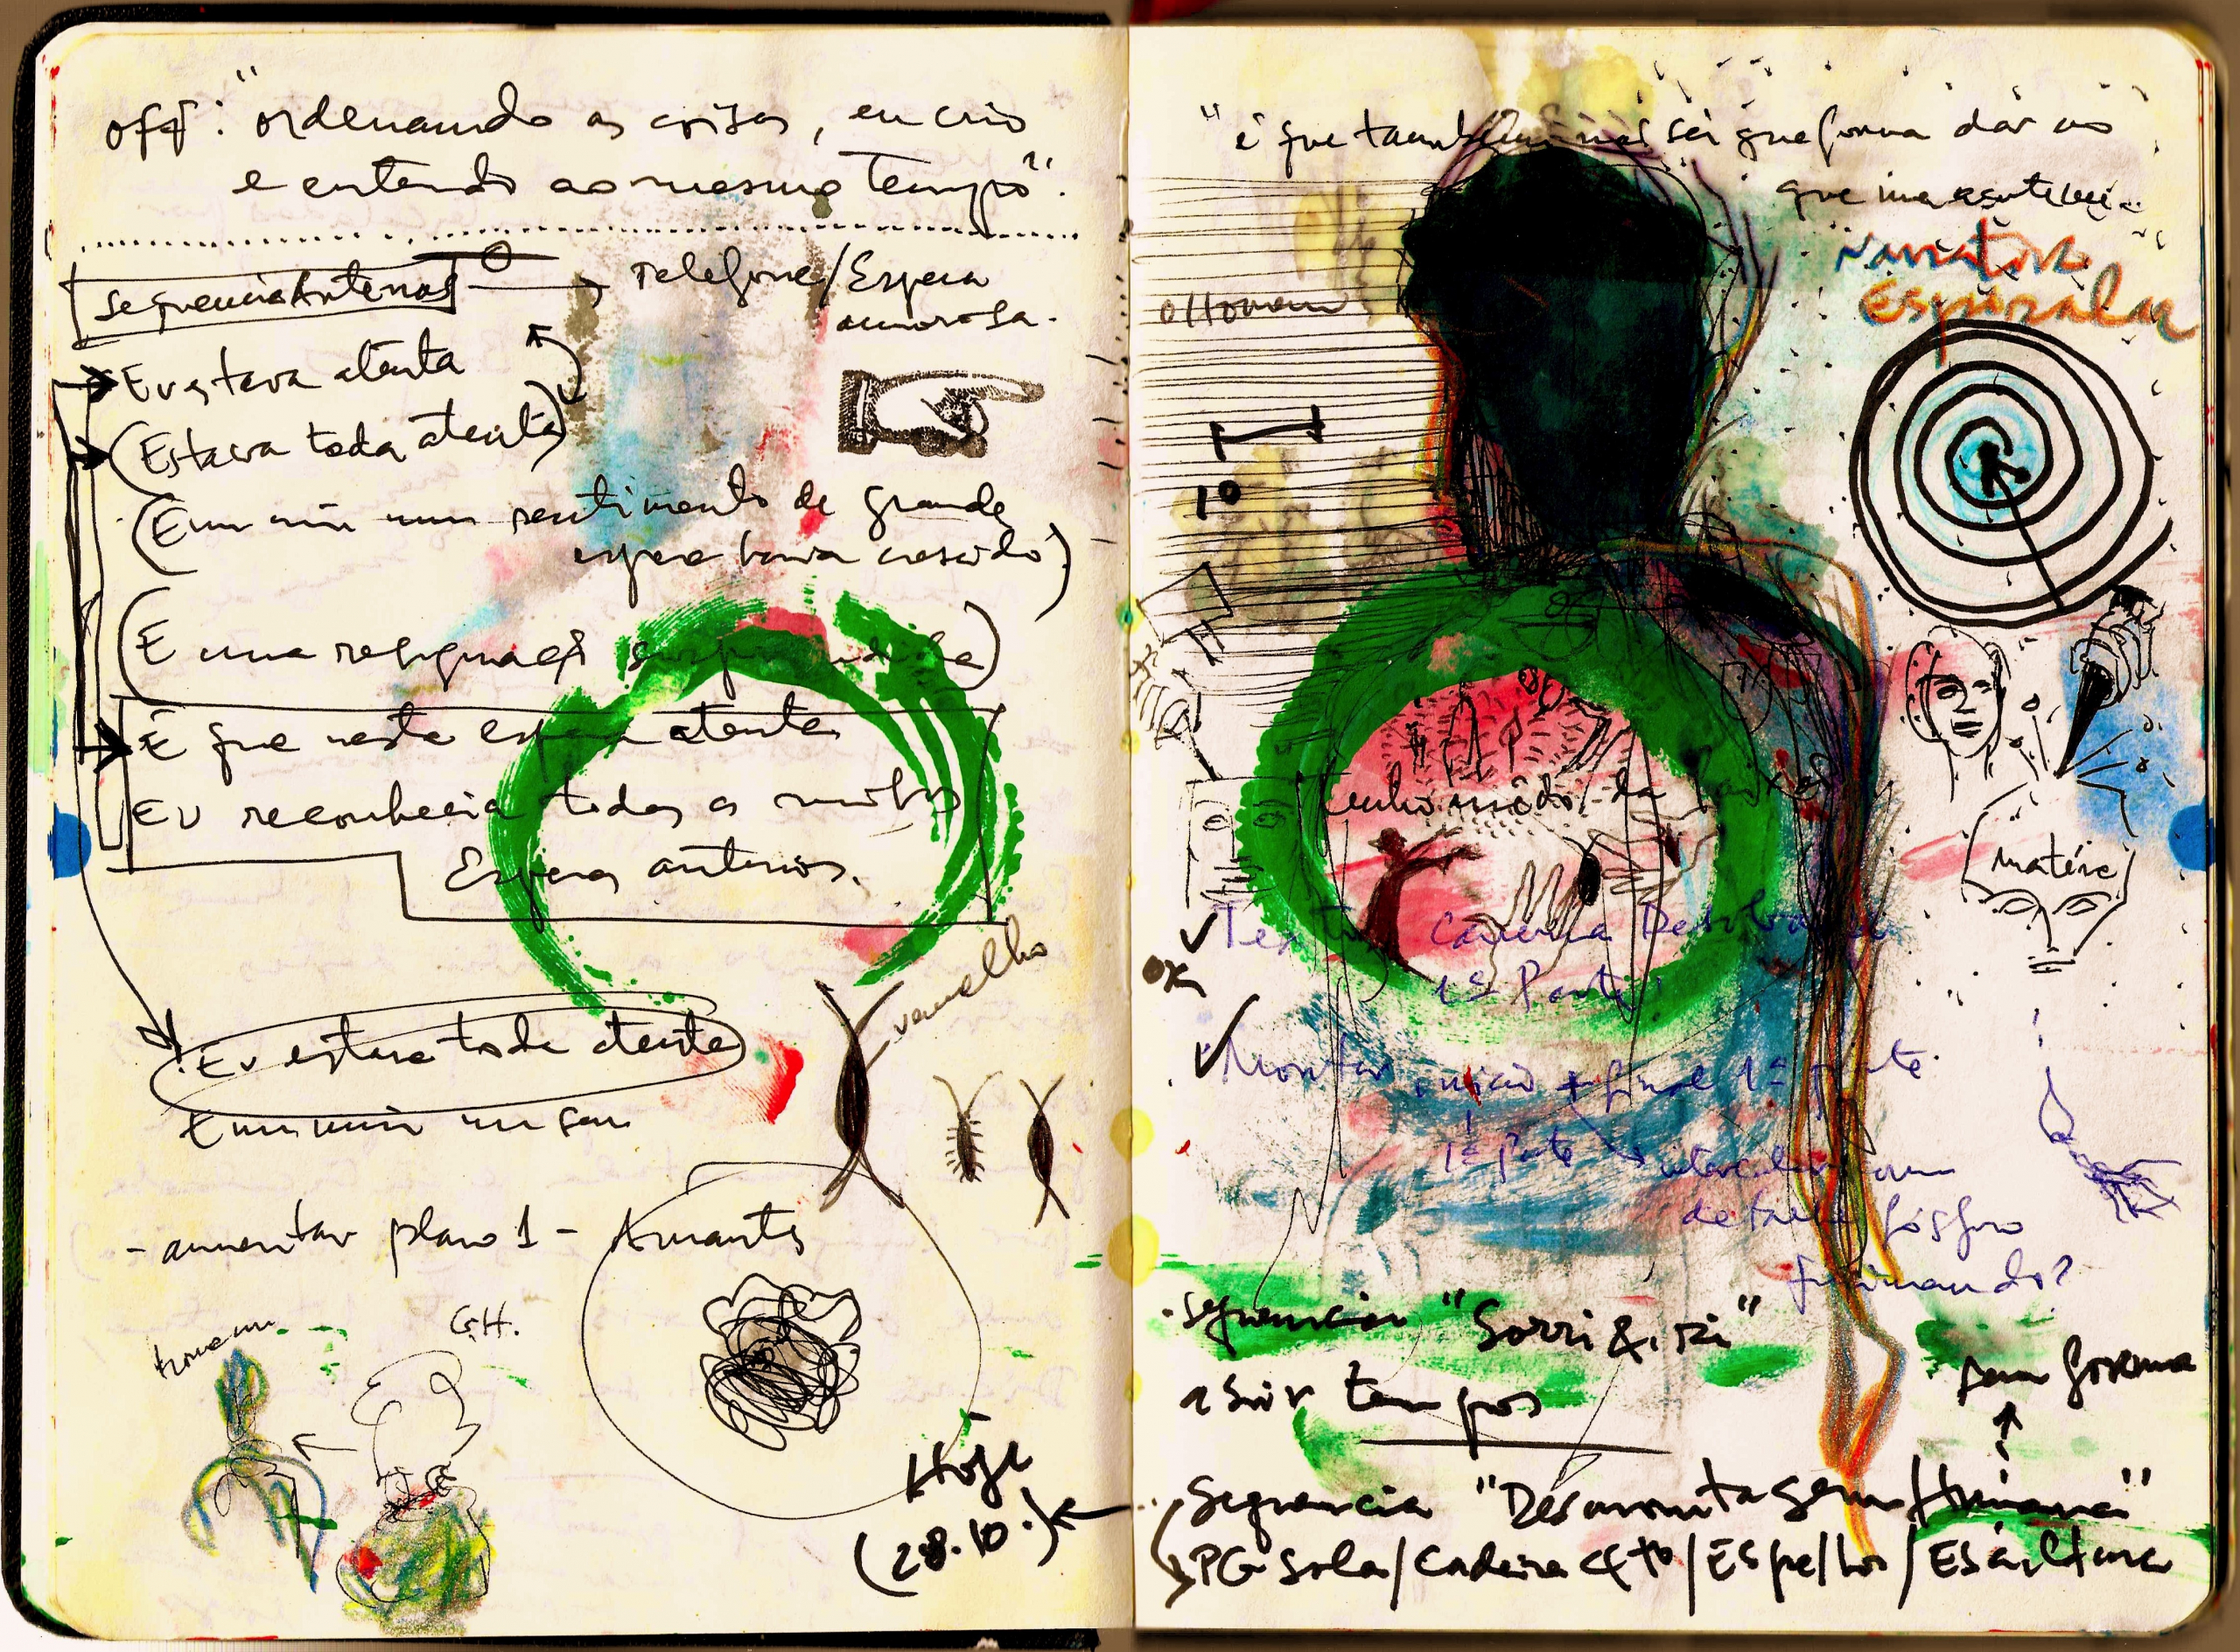 off: "ordenando as coisas, eu crio
e entendo ao mesmo tempo".
sequência Antenas → Telefone/Espera
amorosa.
Eu estava atenta
(Estava toda atenta)
(E em mim um sentimento de grande
espera havia crescido)
(E uma resignação surpreendida)
É que nesta espera atenta
Eu reconhecia todas as minhas
Esperas anteriores.
vermelho
Eu estava toda atenta
E em mim um sen
- aumentar plano 1 - Amantes
homem
G.H.
Hoje
(28.10.)
"é que também não sei que forma dar ao
que me aconteceu.
Narrativa
Espiralar
o homem
1º
tenho medo da paixão
matéria
✓ Texto Caverna
1ª Parte
OK
✓ Montar início + final 1ª parte.
1ª parte intercalar com
detalhe fósforo
queimando?
. sequência "Sorri & ri"
abrir tempos
sem forma
Sequência "Desmontagem Humana"
PG Sala/Cadeira Qto/Espelho/Escultura